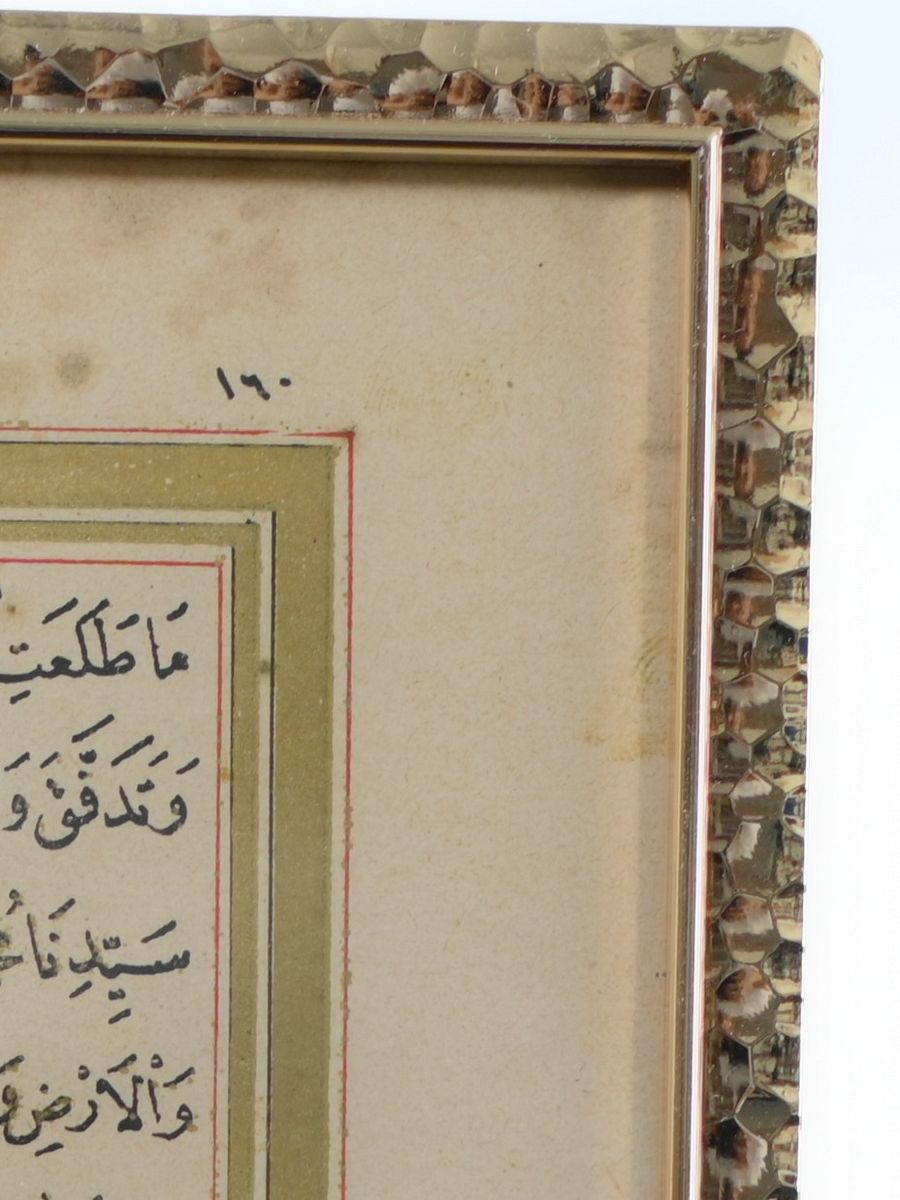 ١٦٠
مَا طَلَعَتِ
وَتَدَفَّقَ وَ
سَيِّدِنَا
وَالْاَرْضِ